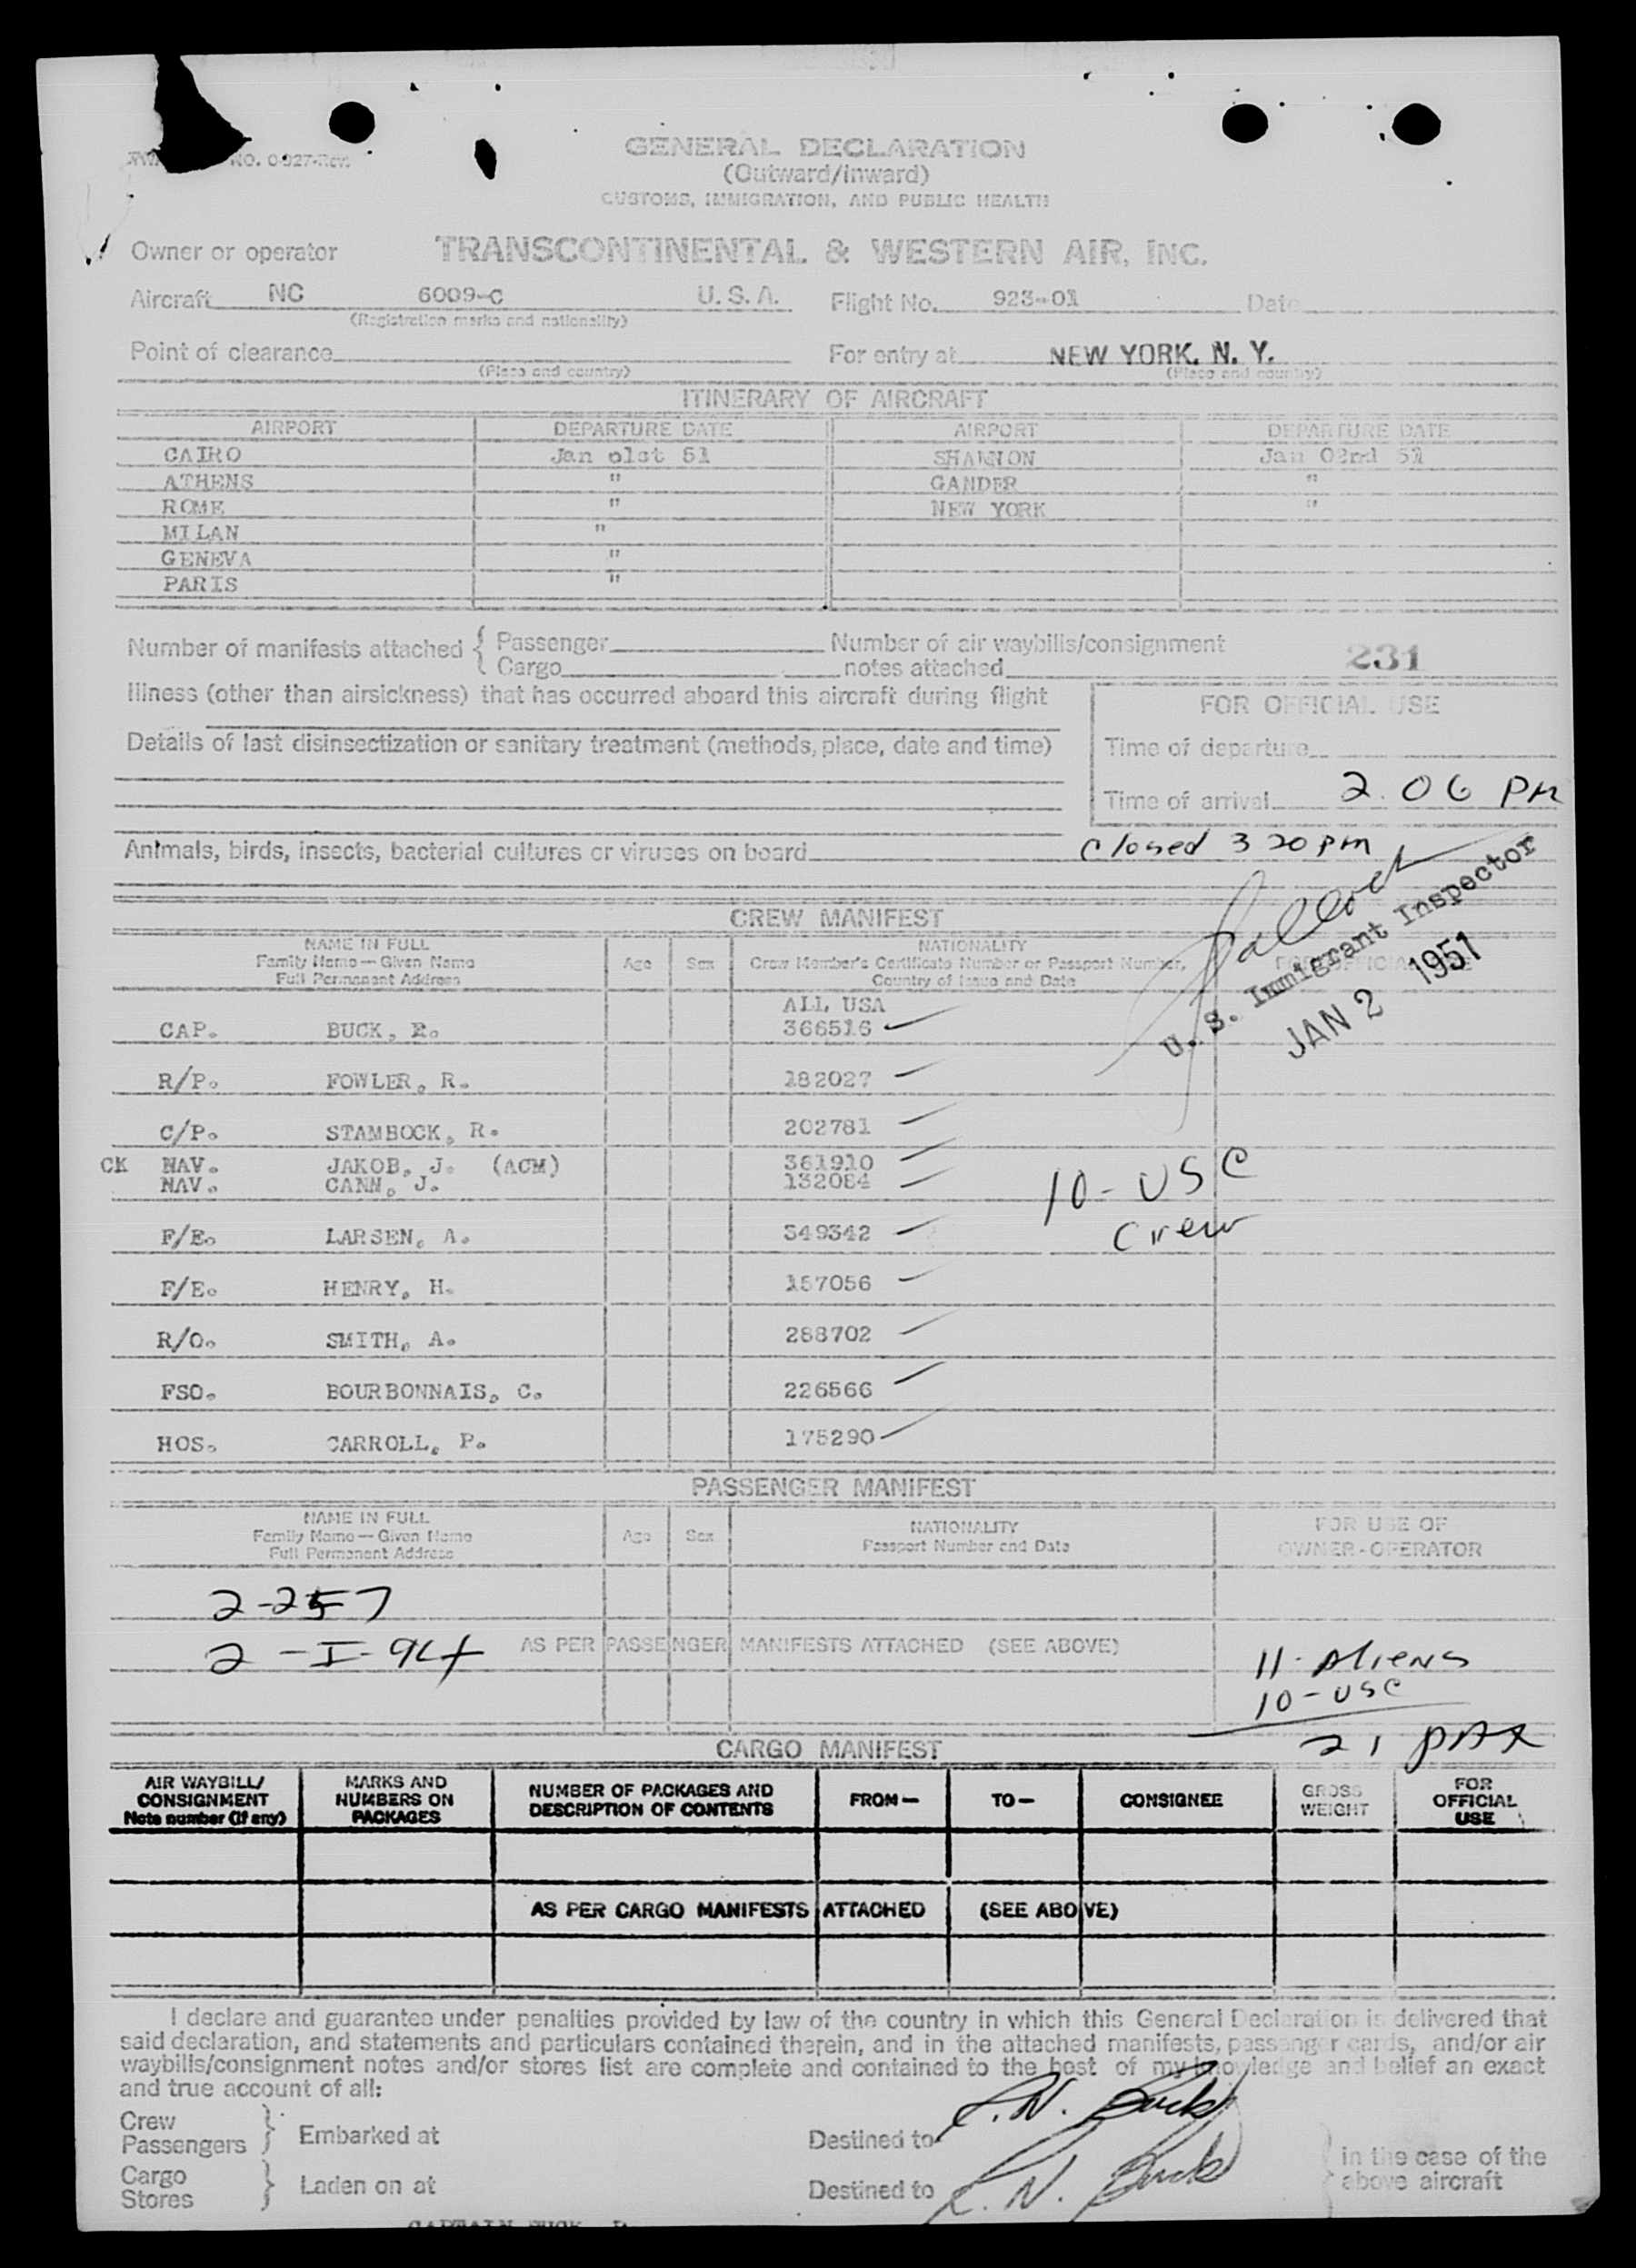 NO. 0-927-Rev.
GENERAL DECLARATION
(Outward/Inward)
CUSTOMS, IMMIGRATION, AND PUBLIC HEALTH
Owner or operator TRANSCONTINENTAL & WESTERN AIR, INC.
Aircraft NC 6009-C U. S. A. Flight No. 923-01 Date
(Registration marks and nationality)
Point of clearance For entry at NEW YORK, N. Y.
(Place and country) (Place and country)
ITINERARY OF AIRCRAFT
AIRPORT DEPARTURE DATE AIRPORT DEPARTURE DATE
CAIRO Jan 01st 51 SHANNON Jan 02nd 51
ATHENS " GANDER "
ROME " NEW YORK "
MILAN "
GENEVA "
PARIS "
Number of manifests attached { Passenger Number of air waybills/consignment
Cargo notes attached 231
Illness (other than airsickness) that has occurred aboard this aircraft during flight
FOR OFFICIAL USE
Details of last disinsectization or sanitary treatment (methods, place, date and time)
Time of departure
Time of arrival 2.06 PM
Animals, birds, insects, bacterial cultures or viruses on board
Closed 3 20 pm
U. S. Immigrant Inspector
JAN 2 1951
CREW MANIFEST
NAME IN FULL
Family Name — Given Name
Full Permanent Address
Age Sex
NATIONALITY
Crew Member's Certificate Number or Passport Number,
Country of Issue and Date
FOR OFFICIAL USE
ALL USA
CAP. BUCK, R. 366516
R/P. FOWLER, R. 182027
C/P. STAMBOCK, R. 202781
CK NAV. JAKOB, J. (ACM) 361910
NAV. CANN, J. 132084
10 - USC
Crew
F/E. LARSEN, A. 349342
F/E. HENRY, H. 157056
R/O. SMITH, A. 288702
FSO. BOURBONNAIS, C. 226566
HOS. CARROLL, P. 175290
PASSENGER MANIFEST
NAME IN FULL
Family Name — Given Name
Full Permanent Address
Age Sex
NATIONALITY
Passport Number and Date
FOR USE OF
OWNER-OPERATOR
2-257
2 - I - 94
AS PER PASSENGER MANIFESTS ATTACHED (SEE ABOVE)
11 - Aliens
10 - USC
21 PAX
CARGO MANIFEST
AIR WAYBILL/
CONSIGNMENT
Note number (if any)
MARKS AND
NUMBERS ON
PACKAGES
NUMBER OF PACKAGES AND
DESCRIPTION OF CONTENTS
FROM —
TO —
CONSIGNEE
GROSS
WEIGHT
FOR
OFFICIAL
USE
AS PER CARGO MANIFESTS ATTACHED (SEE ABOVE)
I declare and guarantee under penalties provided by law of the country in which this General Declaration is delivered that
said declaration, and statements and particulars contained therein, and in the attached manifests, passenger cards, and/or air
waybills/consignment notes and/or stores list are complete and contained to the best of my knowledge and belief an exact
and true account of all:
Crew
Passengers } Embarked at Destined to R. N. Buck
Cargo
Stores } Laden on at Destined to R. N. Buck
in the case of the
above aircraft
CAPTAIN BUCK, R.